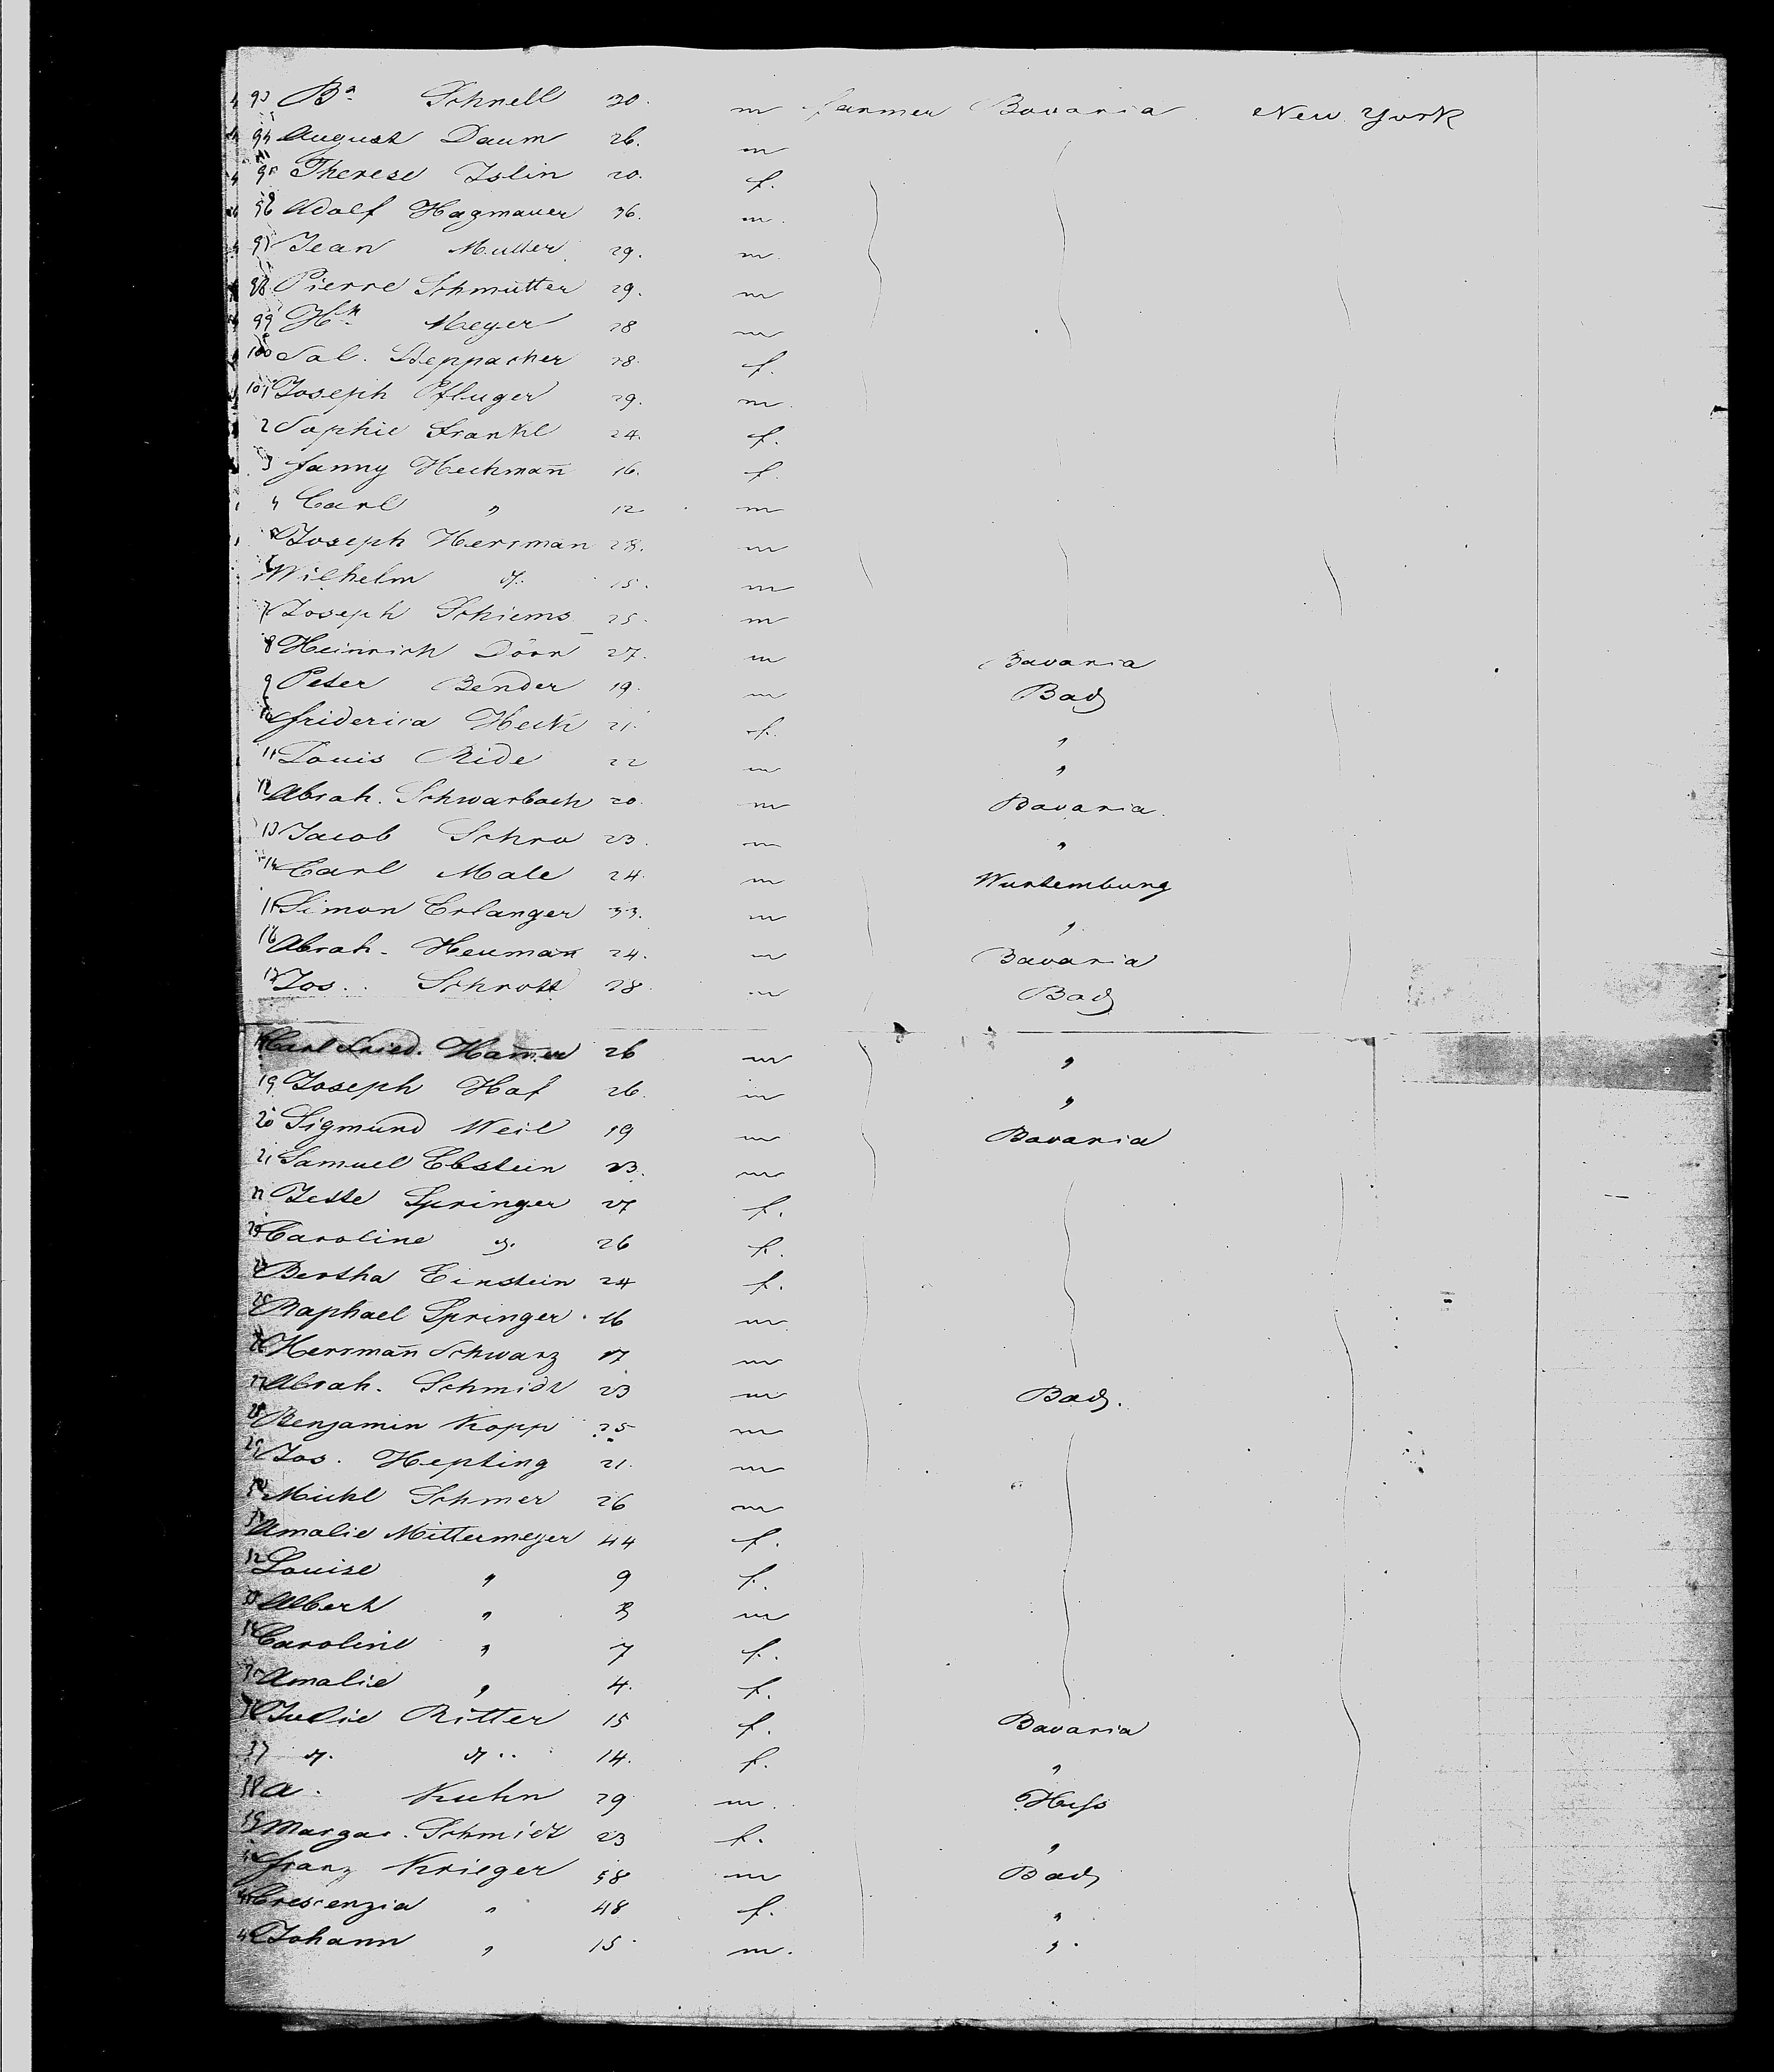 93 Bª Schnell 30. m farmer Bavaria New York
94 August Daum 26. m
95 Therese Islin 20. f.
96 Adolf Hagmauer 36. m.
97 Jean Muller 29. m.
98 Pierre Schmutter 29. m
99 Meyer 28 m
100 Sal. Steppacher 28. f.
101 Joseph Pfluger 29. m.
2 Sophie Frankl 24. f.
3 Fanny Heckmañ 16. f.
4 Carl " 12 m
Joseph Herrman 28. m
Wilhelm " 15. m
7 Joseph Schiems 25. m
8 Heinrich Dörr 27. m Bavaria
9 Peter Bender 19. m Bad
10 Friderica Heck 21. f. "
11 Louis Ride 22 m "
12 Abrah. Schwarbach 20. m Bavaria.
13 Jacob Schro 23. m "
14 Carl Male 24. m Wurtemburg
15 Simon Erlanger 33. m "
16 Abrah. Heuman 24. m Bavaria
17 Jos. Schrott 28. m Bad
18 Carl Fried. Ham̃er 26 m "
19 Joseph Haf 26. m "
20 Sigmund Weil 19 m Bavaria
21 Samuel Ebstein 23. m
22 Jette Springer 27 f.
23 Caroline " 26 f.
24 Bertha Einstein 24 f.
25 Raphael Springer 16 m
26 Herrmañ Schwarz 17 m
27 Abrah. Schmidt 23 m Bad.
28 Benjamin Kopp 25 m
29 Jos. Hepting 21. m
30 Michl Schmer 26 m
31 Amalie Mittermeyer 44 f.
32 Louise " 9 f.
33 Albert " m
34 Caroline " 7 f.
35 Amalie " 4. f.
36 Julie Ritter 15 f. Bavaria
37 " " 14. f. "
38 A. Kuhn 29 m. Hess
39 Margar. Schmidt 23 f. "
40 Franz Krieger 58 m Bad
41 Crescenzia " 48 f. "
42 Johann " 15 m. "